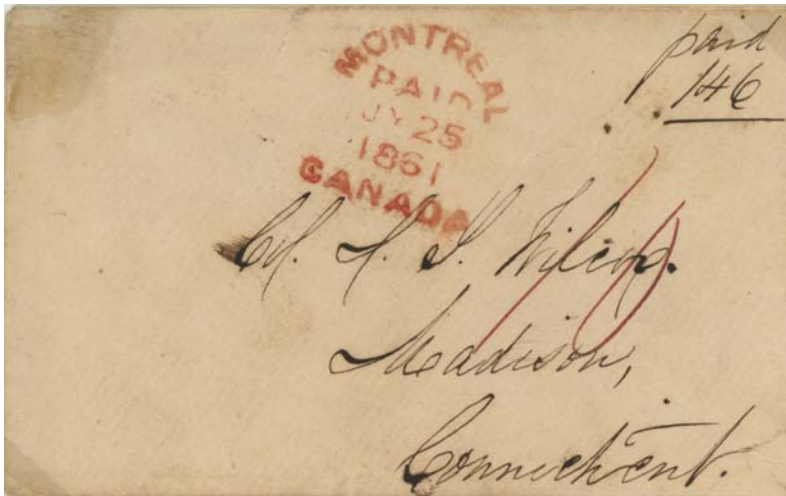 MONTREAL
PAID
JY 25
1861
CANADA
paid
146
10
Col. A. S. Wilcox.
Madison,
Connecticut.